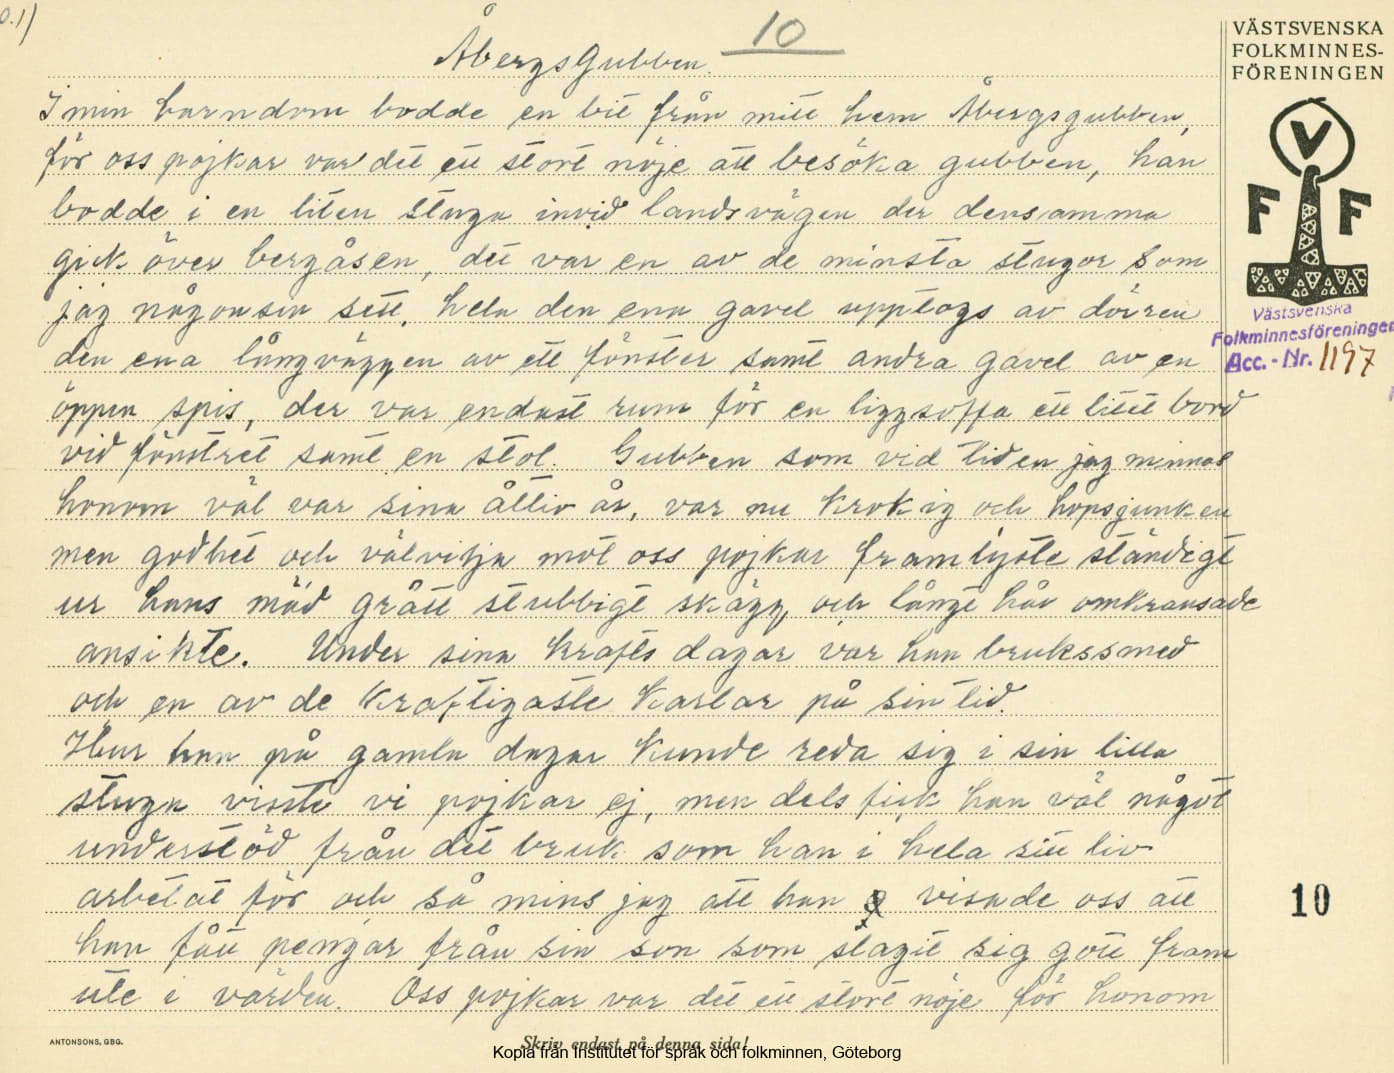 10
VÄSTSVENSKA
FOLKMINNES-
FÖRENINGEN
ÅbergsGubben.
I min barndom bodde en bit från mitt hem Åbergsgubben,
för oss pojkar var det ett stort nöje att besöka gubben, han
bodde i en liten stuga invid landsvägen der densamma
gick över bergåsen, det var en av de minsta stugor som
jag någonsin sett. hela den ena gavel upptogs av dörren
den ena långväggen av ett fönster samt andra gavel av en
öppen spis, der var endast rum för en liggsoffa ett litet bord
vid fönstret samt en stol. Gubben som vid tiden jag minnas
honom väl var sina åttio år, var nu krokig och hopsjunken
men godhet och välvilja mot oss pojkar framlyste ständigt
ur hans mäd grått stubbigt skägg och långt hår omkransade
ansikte. Under sina krafts dagar var han brukssmed
och en av de kraftigaste karlar på sin tid.
Hur han på gamla dagar kunde reda sig i sin lilla
stuga visste vi pojkar ej, men dels fick han väl något
understöd från det bruk som han i hela sitt liv
arbetat för och så mins jag att han visade oss att
han fått pengar från sin son som slagit sig gott fram
ute i värden. Oss pojkar var det ett stort nöje för honom
V
F F
Västsvenska
Folkminnesföreningen
Acc. - Nr. 1197
10
ANTONSONS, GBG.
Skriv endast på denna sida!
Kopia från Institutet för språk och folkminnen, Göteborg